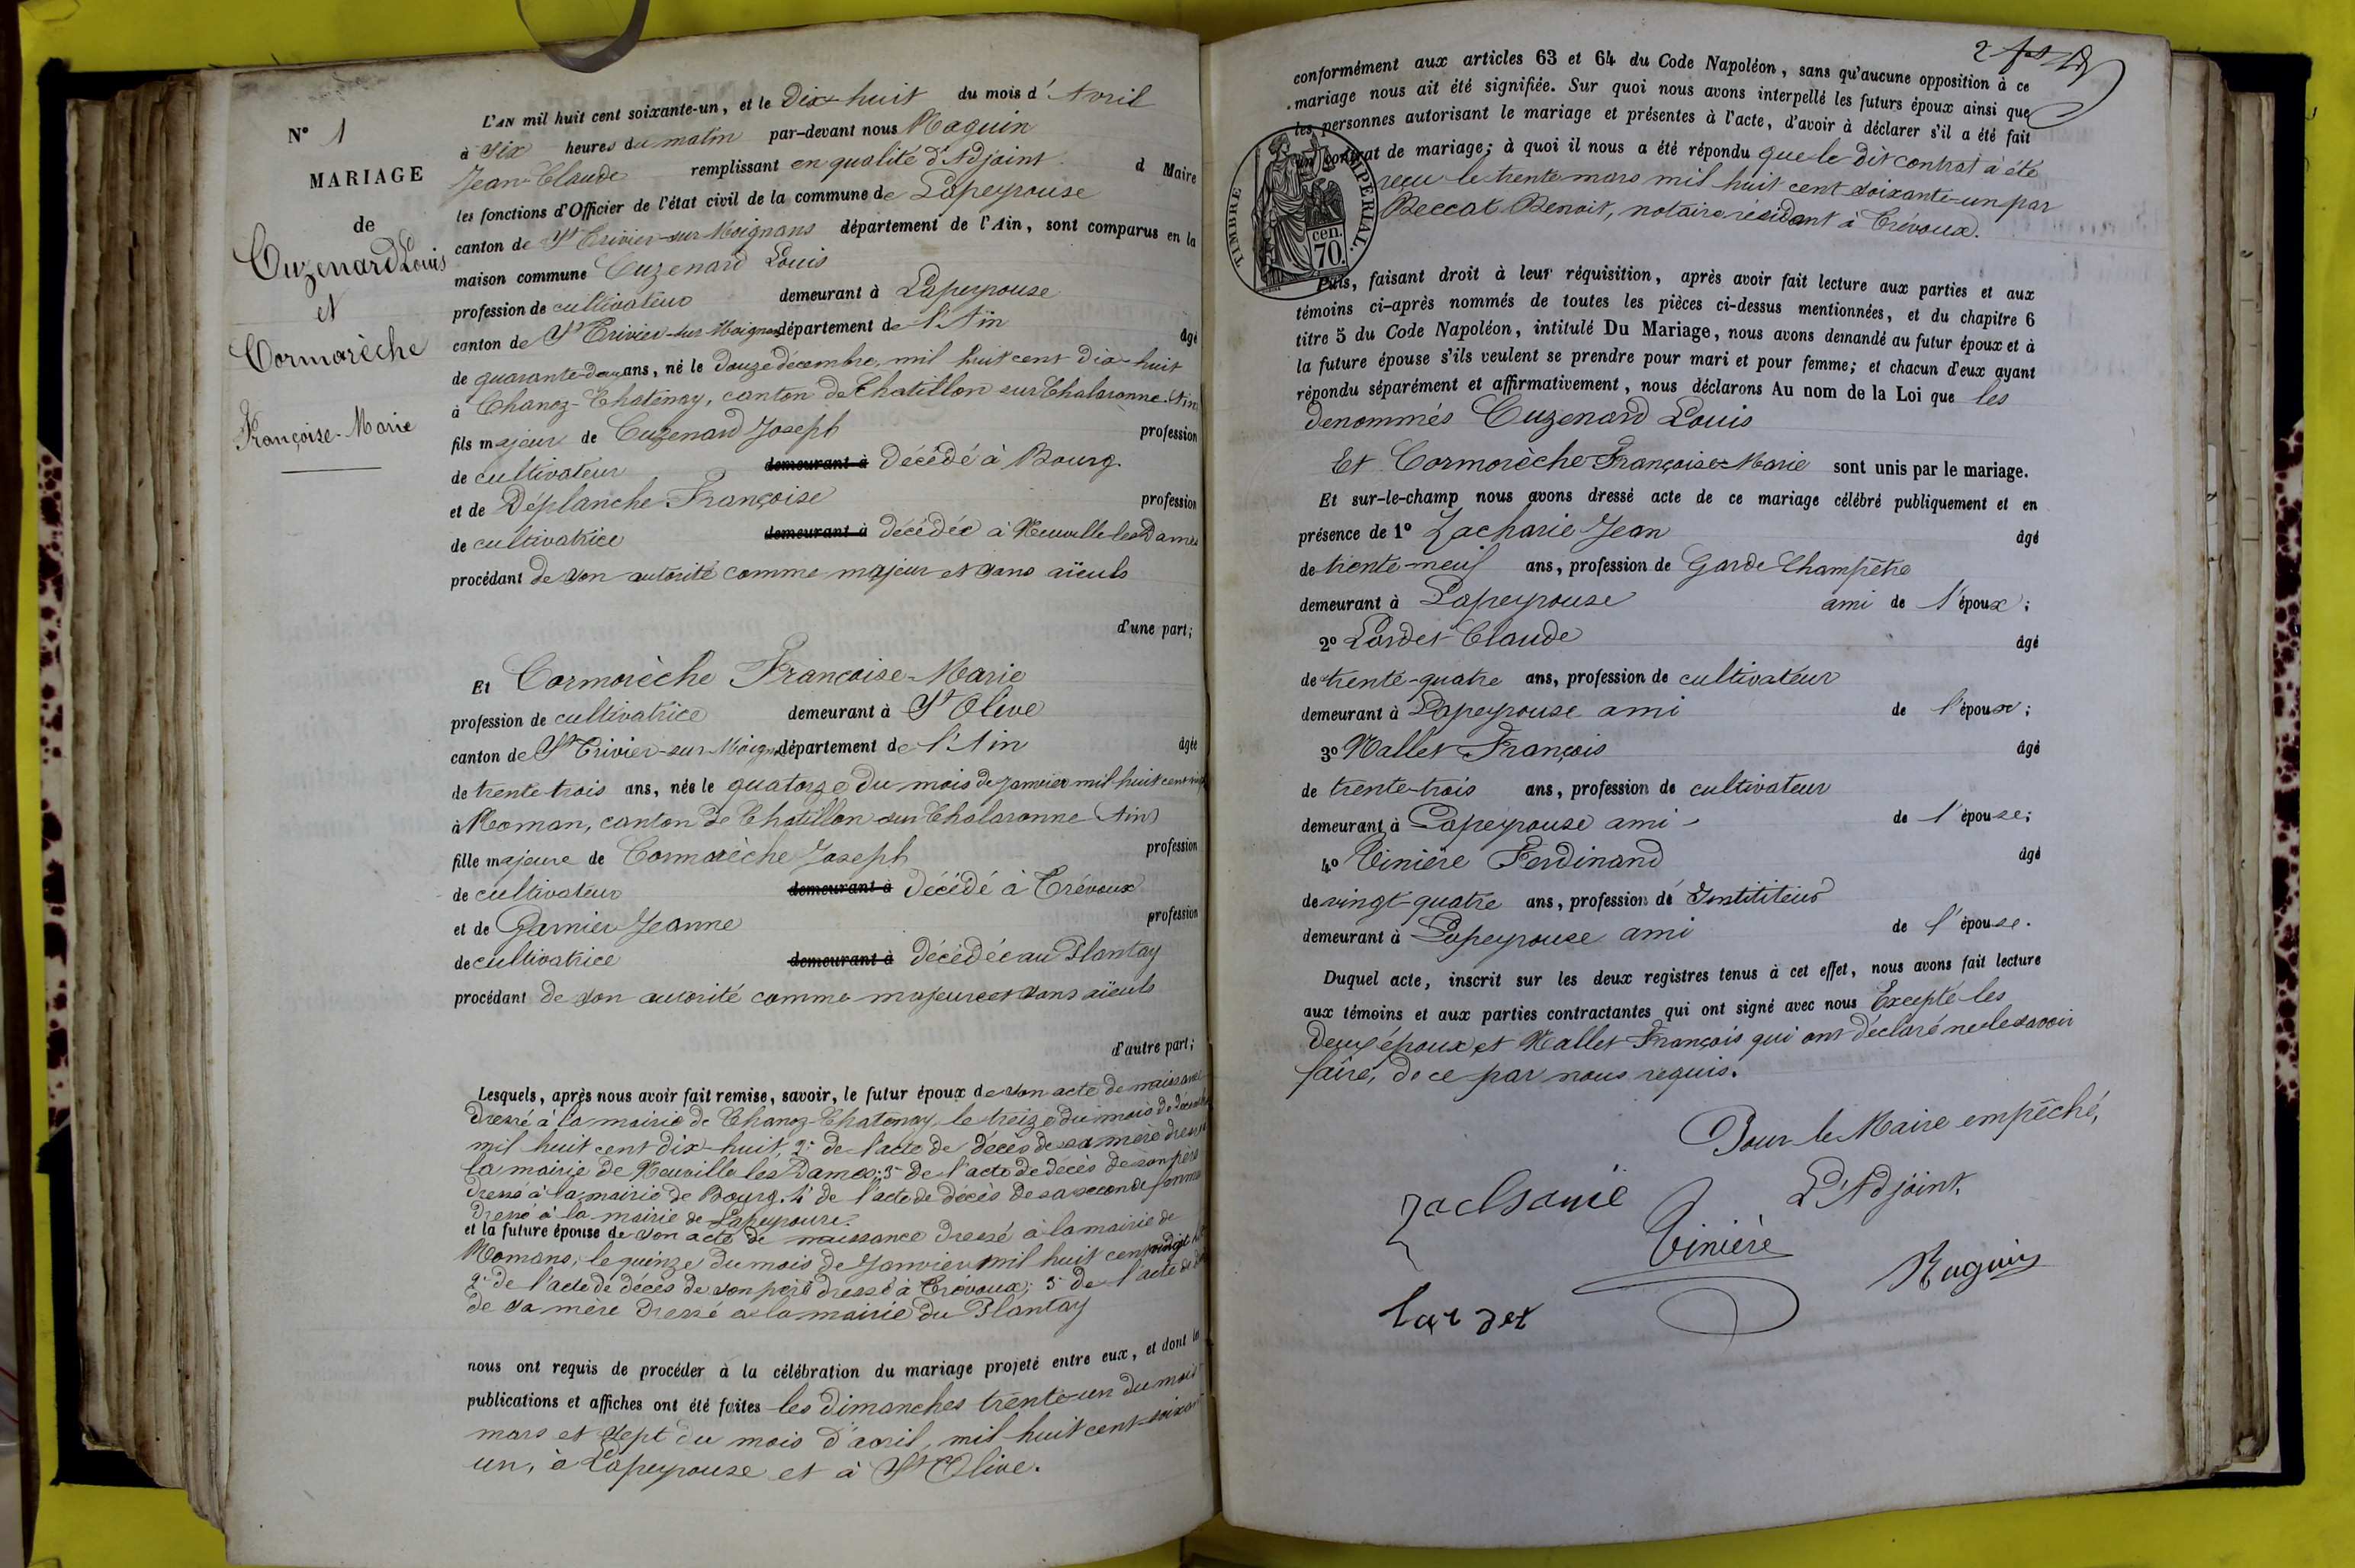 N° 1
MARIAGE
de
Cuzenard Louis
et
Cormorèche
Françoise-Marie
L'AN mil huit cent soixante-un, et le Dix-huit du mois d'Avril
à Six heures du matin par-devant nous Raguin
Jean-Claude remplissant en qualité d'Adjoint d Maire
les fonctions d'Officier de l'état civil de la commune de Lapeyrouse
canton de St Trivier-sur-Moignans département de l'Ain, sont comparus en la
maison commune Cuzenard Louis
profession de cultivateur demeurant à Lapeyrouse
canton de St Trivier-sur-Moignans département de l'Ain âgé
de quarante-deux ans, né le douze décembre, mil huit cent dix-huit
à Chanoz-Chatenay, canton de Chatillon sur Chalaronne. Ain
fils majeur de Cuzenard Joseph profession
de cultivateur demeurant à Décédé à Bourg.
et de Déplanche Françoise profession
de cultivatrice demeurant à décédée à Neuville-les-Dames
procédant de son autorité comme majeur et sans aïeuls
d'une part;
Et Cormorèche Françoise-Marie
profession de cultivatrice demeurant à St Olive
canton de St Trivier-sur-Moignans département de l'Ain âgée
de trente-trois ans, née le quatorze du mois de janvier mil huit cent
à Roman, canton de Chatillon sur Chalaronne (Ain)
fille majeure de Cormorèche Joseph profession
de cultivateur demeurant à Décédé à Trévoux
et de Garnier Jeanne profession
de cultivatrice demeurant à Décédée au Plantay
procédant de son autorité comme majeure et sans aïeuls
d'autre part;
Lesquels, après nous avoir fait remise, savoir, le futur époux de son acte de naissance
dressé à la mairie de Chanoz-Chatenay, le treize du mois de décembre
mil huit cent dix-huit; 2° de l'acte de décès de sa mère dressé
la mairie de Neuville les Dames; 3° de l'acte de décès de son père
dressé à la mairie de Bourg. 4° de l'acte de décès de sa seconde femme
dressé à la mairie de Lapeyrouse.
et la future épouse de son acte de naissance dressé à la mairie de
Romans, le quinze du mois de Janvier mil huit cent vingt
2° de l'acte de décès de son père dressé à Trévoux; 3° de l'acte de
de sa mère dressé à la mairie du Plantay
nous ont requis de procéder à la célébration du mariage projeté entre eux, et dont les
publications et affiches ont été faites les dimanches trente-un du mois
mars et sept du mois d'avril, mil huit cent-soixante
un, à Lapeyrouse et à St Olive.
2
conformément aux articles 63 et 64 du Code Napoléon, sans qu'aucune opposition à ce
mariage nous ait été signifiée. Sur quoi nous avons interpellé les futurs époux ainsi que
les personnes autorisant le mariage et présentes à l'acte, d'avoir à déclarer s'il a été fait
un contrat de mariage; à quoi il nous a été répondu que le dit contrat à été
reçu le trente mars mil huit cent soixante-un par
Beccat Benoit, notaire résidant à Trévoux.
TIMBRE IMPERIAL.
cen.
70.
Puis, faisant droit à leur réquisition, après avoir fait lecture aux parties et aux
témoins ci-après nommés de toutes les pièces ci-dessus mentionnées, et du chapitre 6
titre 5 du Code Napoléon, intitulé Du Mariage, nous avons demandé au futur époux et à
la future épouse s'ils veulent se prendre pour mari et pour femme; et chacun d'eux ayant
répondu séparément et affirmativement, nous déclarons Au nom de la Loi que les
denommés Cuzenard Louis
Et Cormorèche Françoise-Marie sont unis par le mariage.
Et sur-le-champ nous avons dressé acte de ce mariage célébré publiquement et en
présence de 1° Zacharie Jean âgé
de trente-neuf ans, profession de Garde Champêtre
demeurant à Lapeyrouse ami de l'époux;
2° Lardet Claude âgé
de trente-quatre ans, profession de cultivateur
demeurant à Lapeyrouse ami de l'époux;
3° Nallet François âgé
de trente-trois ans, profession de cultivateur
demeurant à Lapeyrouse ami de l'épouse;
4° Tinière Ferdinand âgé
de vingt-quatre ans, profession de Instituteur
demeurant à Lapeyrouse ami de l'épouse.
Duquel acte, inscrit sur les deux registres tenus à cet effet, nous avons fait lecture
aux témoins et aux parties contractantes qui ont signé avec nous Excepté les
deux époux et Nallet François qui ont déclaré ne le savoir
faire, de ce par nous requis.
Pour le Maire empêché,
L'Adjoint.
Zacharie
Tinière
Raguin
lardet